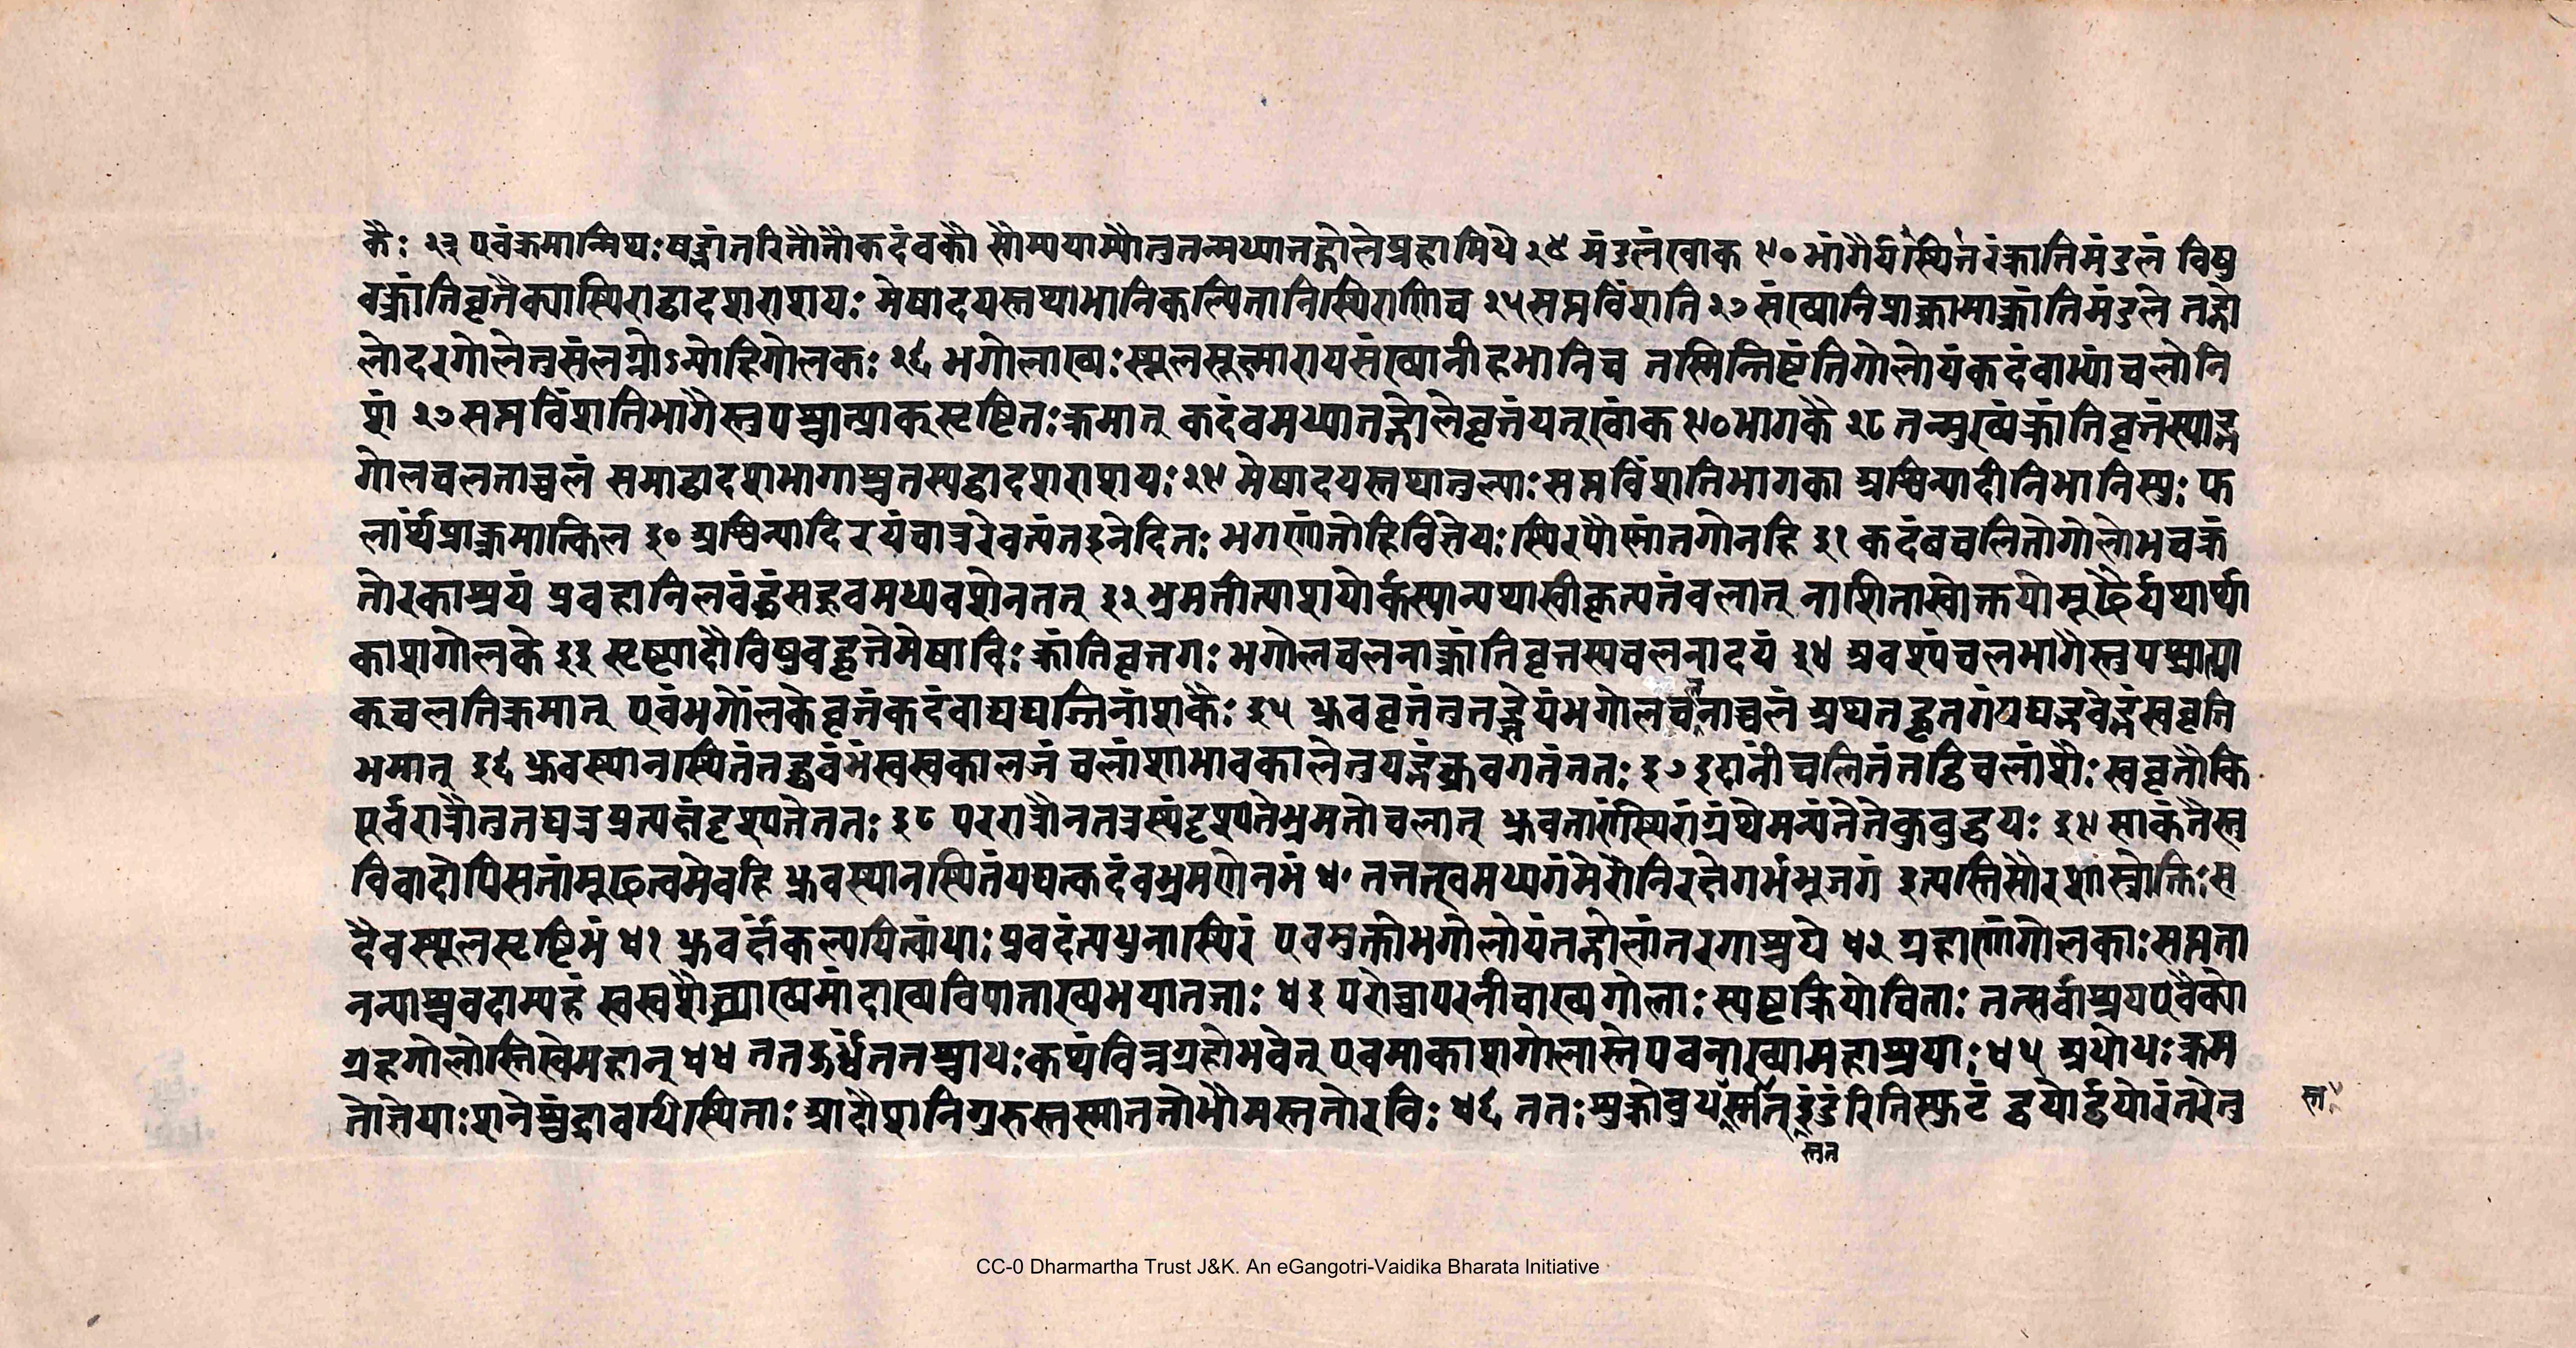 कैः २३ एवंक्रमान्मिथः षड्भांतरितौतौकदंबकौ सौम्ययाम्यौतुतन्मध्यात्तद्गोलेप्रहामिथे २४ मंडलंखांक ९० भांगैर्यत्स्थितंरंक्रांतिमंडलं विषु
वक्रांतिवृत्तैक्यास्थिराद्वादशराशयः मेषादयस्तथाभानिकल्पितानिस्थिराणिच २५ सप्तविंशति २७ संख्यानिप्राक्क्रमाक्रांतिमंडले तद्गो
लोदरगोलेतुसंलग्नोऽन्योहिगोलकः २६ भगोलाख्यः स्थूलसूक्ष्मारायसंख्यानीहभानिच तस्मिन्तिष्टंतिगोलोयंकदंबाभ्यांचलोनि
शं २७ सप्तविंशतिभागैस्तुपश्चात्प्राक्सृष्टितः क्रमात् कदंबमध्यात्तद्गोलेवृत्तंयत्खांक ९० भागकै २८ तन्मुख्यंक्रांतिवृत्तंस्याद्भ
गोलचलनाच्चलं समाद्वादशभागाश्चतस्यद्वादशराशयः २९ मेषादयस्तथातुल्याः सप्तविंशतिभागका अश्विन्यादीनिभानिस्युः फ
लार्थंप्राक्क्रमात्किल ३० अश्विन्यादिरयंचात्ररेवत्यंतइनेदितः भगणांतोहिविज्ञेयः स्थिरपौष्णांतगोनहि ३१ कदंबचलितोगोलोभचक्रं
तारकाश्रयं प्रवहानिलबंद्धंसद्ध्रुवमध्यवशेनतत् ३२ भ्रमतीत्याशयोर्कस्यान्यथास्वीकृत्यतंबलात् नाशितास्वोक्तयोमूढैर्यथार्था
काशगोलके ३३ सृष्ट्यादौविषुवद्वृत्तेमेषाविः क्रांतिवृत्तगः भगोलचलनाक्रांतिवृत्तस्यचलनादयं ३४ अवश्यंचलभागैस्तुपश्चात्प्रा
क्चलतिक्रमात् एवंभगोलकेवृत्तंकदंबाद्यद्यज्जिनांशकैः ३५ ध्रुववृत्तंतुतज्ज्ञेयंभगोलचनाच्चलं अथतद्वृत्तगंयद्यद्भवेद्भंस्ववृत्ति
भमात् ३६ ध्रुवस्थानस्थितंतद्ध्रुवंभंस्वस्वकालजं चलांशाभावकालेतुयद्भंध्रुवगतंततः ३७ इदानींचलितंतद्विचलांशैः स्ववृत्तौकि
पूर्वरात्रौतुतद्यत्रप्रत्यक्षंदृश्यतेततः ३८ पररात्रौनतत्रस्थंदृश्यतेभ्रमतोचलात् ध्रुवतारांस्थिरांग्रंथेमन्यंतेतेकुबुद्धयः ३९ साकंतैस्तु
विवादोपिसतांमूढत्वमेवहि ध्रुवस्थानस्थितंयद्यत्कदंबभ्रमणेनभं ४० तत्तत्ध्रुवमध्यगंमेरौनिरक्षेगर्भभूजगं इत्यस्तिसौरशास्त्रोक्तिः स
दैवस्थूलसृष्टिभं ४१ ध्रुवर्त्तंकल्पयित्वांधाः प्रवदंत्यधुनास्थिरं एवमुक्तोभगोलोयंतद्गोलांतरगाश्चये ४२ ग्रहाणांगोलकाः सप्तता
नन्याश्चवदाम्यहं स्वस्वशैघ्र्याख्यमांदाख्यविपाताख्यभयानजाः ४३ परोच्चापरनीचाख्यगोलाः स्पष्टक्रियोचिताः तत्सर्वाश्रयएवैको
ग्रहगोलोस्तिखेमहान् ४४ ततऊर्ध्वंततश्चाधः कथंचिन्नग्रहोभवेत् एवमाकाशगोलास्तेपवनाख्यामहाश्रयाः ४५ अधोधः क्रम
तोज्ञेयाः शनेश्चंद्रावधिस्थिताः आदौशनिगुरुस्तस्मात्ततोभौमस्ततोरविः ४६ ततः शुक्रोबुधस्तस्मात् इंदुरितिस्फुटं द्वयोर्द्वयोरंतरेतु
स्तत